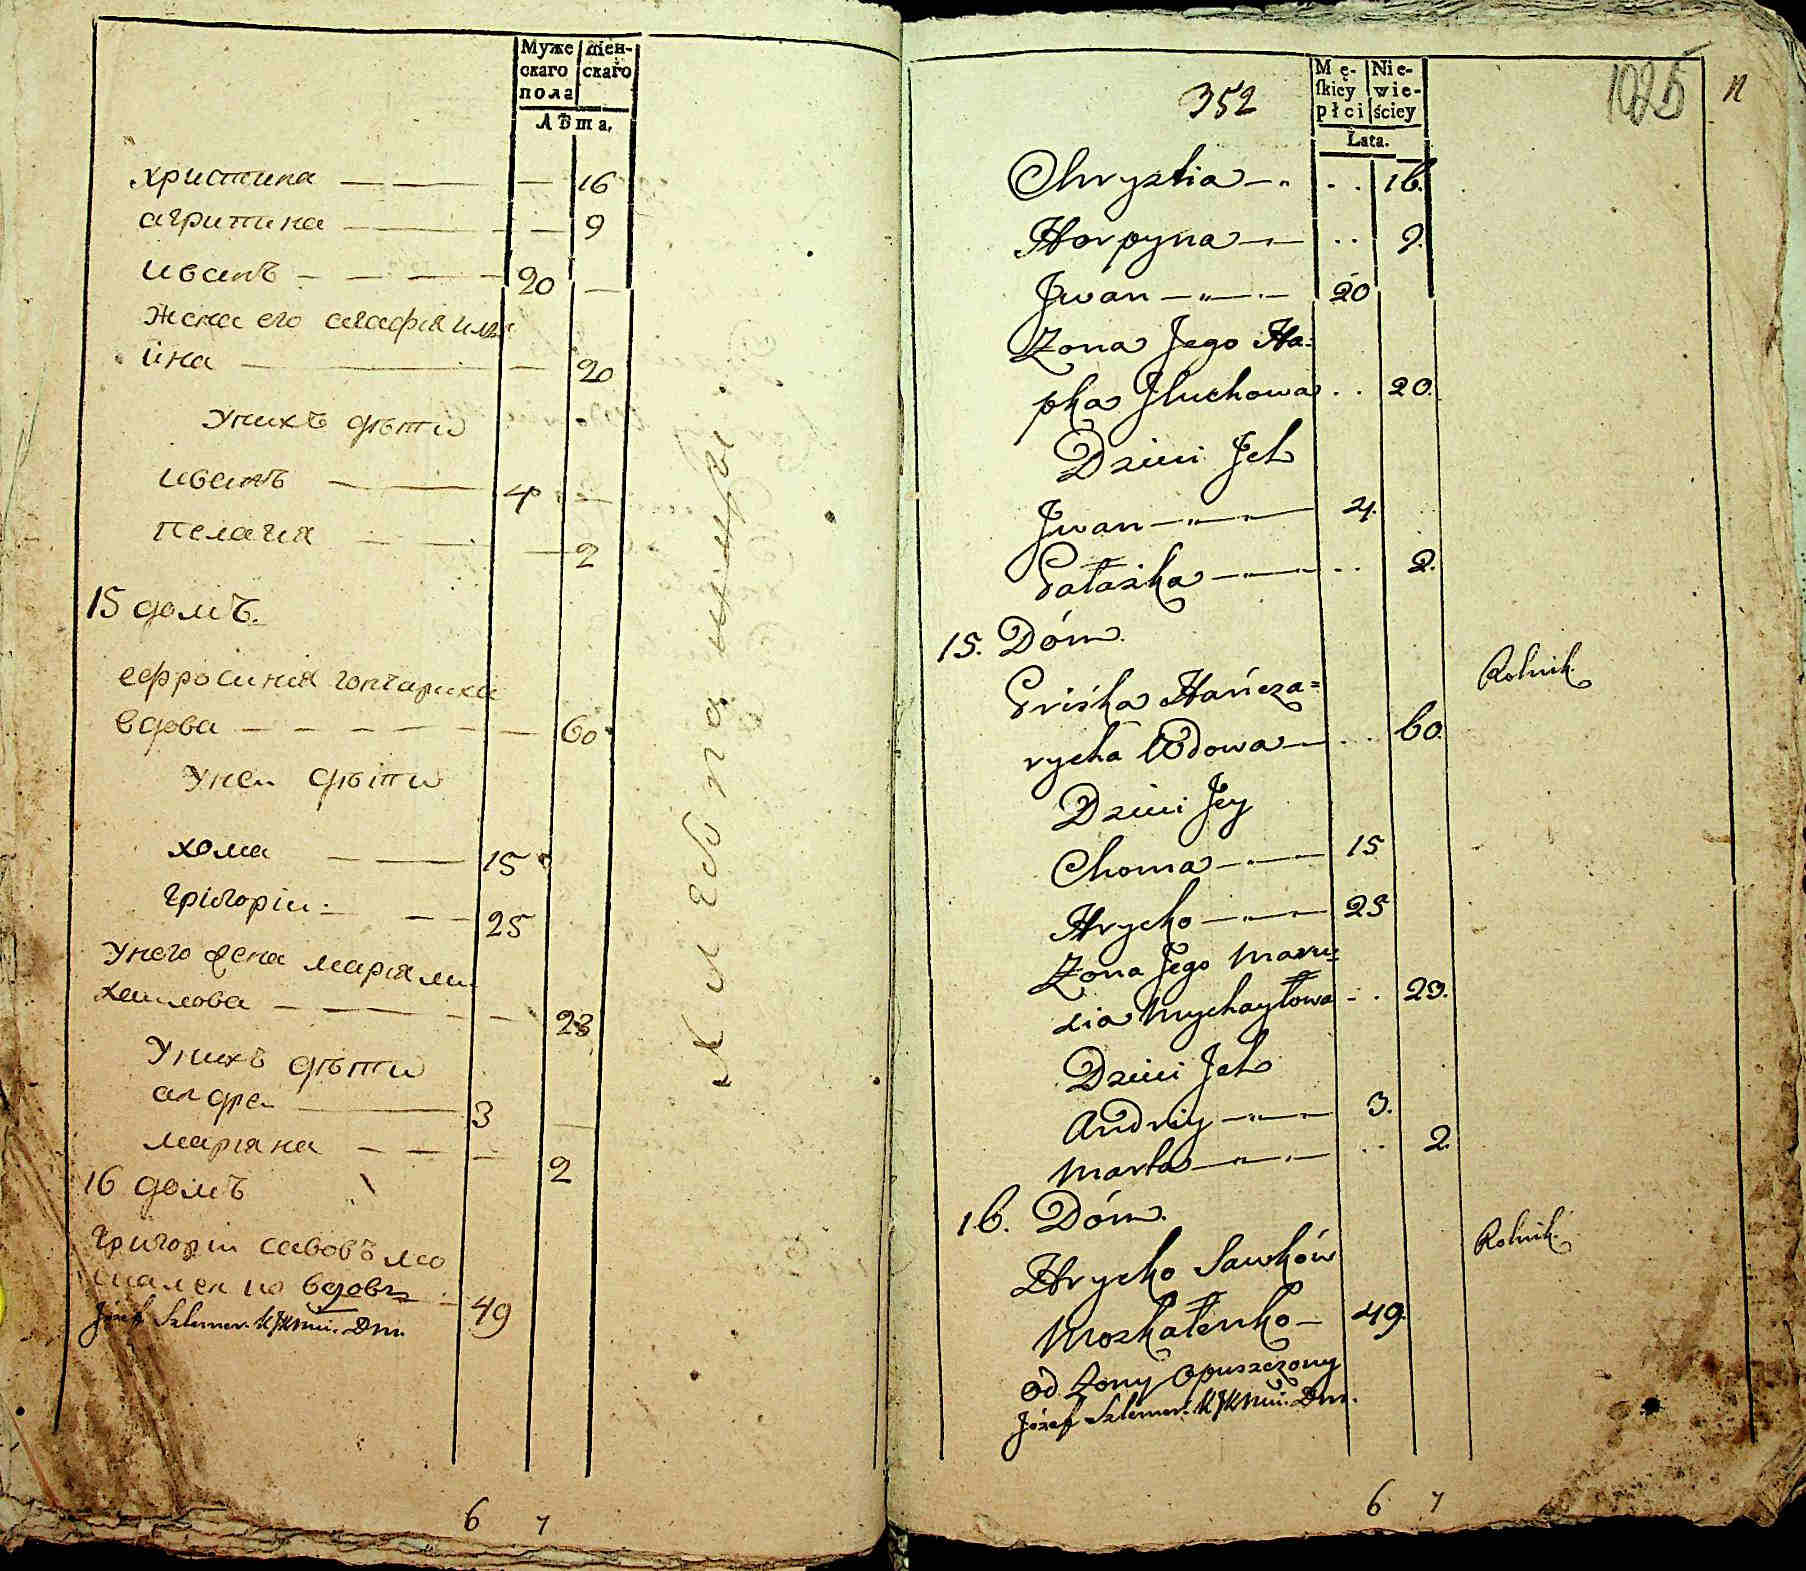 Муже
скаго
пола
жен-
скаго
Лѣта,
христина — — — 16
агрипина — — — 9
иванъ — — — 20 —
Жена его агафія или
ина — — 20
Унихъ дѣти
иванъ — — 4 —
пелагия — — — 2
15 домъ.
ефросинія гончариха
вдова — — — — — — 60
Уней дѣти
хома — — — 15
григоріи — — — 25
Унего жена марія ми
хаилова — — — — — 23
Унихъ дѣти
андре — 3 —
маріяна — — — 2
16 домъ
григоріи савовъ мо
49
Józef Szlemer. Dm.
6 7
хлебопашцы
352
Mę-
skiey
płci
Nie-
wie-
ściey
Lata.
1025
12
Chrystia — .. 16.
Horpyna — .. 9.
Jwan — " — 20
Zona Jego Ha=
pka Jluchowa .. 20.
Dzieci Jch
Jwan — " — 4.
Pałażka — .. 2.
15. Dóm.
Priśka Hańcza=
Rolnik
rycha Wdowa — .. 60.
Dzieci Jey
Choma — " — 15
Hrycko — " — 25
Zona Jego Maru=
sia Mychayłowa .. 23.
Dzieci Jch
Andriy — " — 3.
Marta — " — .. 2.
16. Dóm.
Hrycko Sawków
Rolnik.
Moskałenko — 49
od Zony Opuszczony
Józef Szlemer. Dm.
6 7